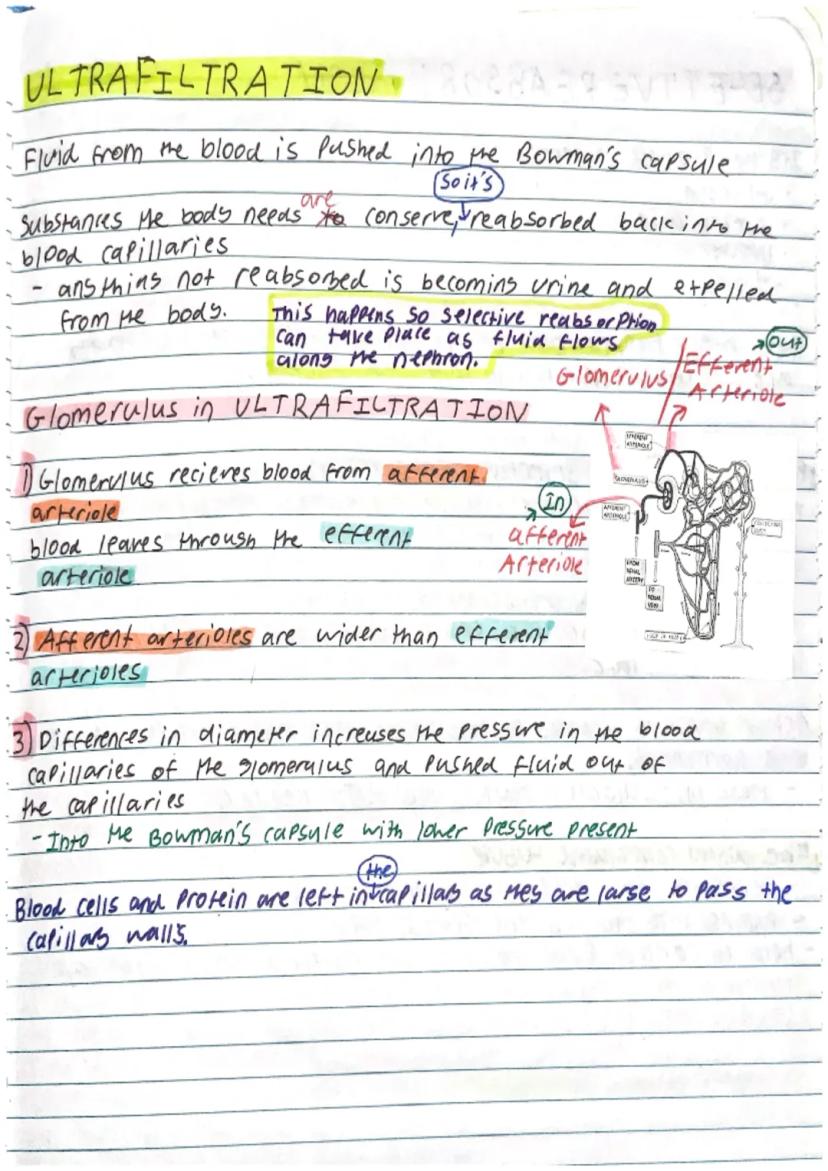 ULTRAFILTRATION.
Fluid from the blood is pushed into the Bowman's capsule
So it's
are
Substances the body needs to conserve, reabsorbed back into the
blood capillaries
- anything not reabsorbed is becoming urine and expelled
from the body.
This happens so selective reabsorption
can take place as fluid flows
along the nephron.
Out
Glomerulus
Efferent
Arteriole
Glomerulus in ULTRAFILTRATION
1) Glomerulus recieves blood from afferent
arteriole
blood leaves through the efferent
arteriole
In
afferent
Arteriole
EFFERENT
ARTERIOLE
GLOMERULUS
AFFERENT
ARTERIOLE
FROM
RENAL
ARTERY
TO
RENAL
VEIN
2) Afferent arterioles are wider than efferent
arterioles
3) Differences in diameter increases the pressure in the blood
capillaries of the glomerulus and pushed fluid out of
the capillaries
- Into the Bowman's capsule with lower pressure present
the
Blood cells and protein are left in capillary as they are large to pass the
capillary walls.